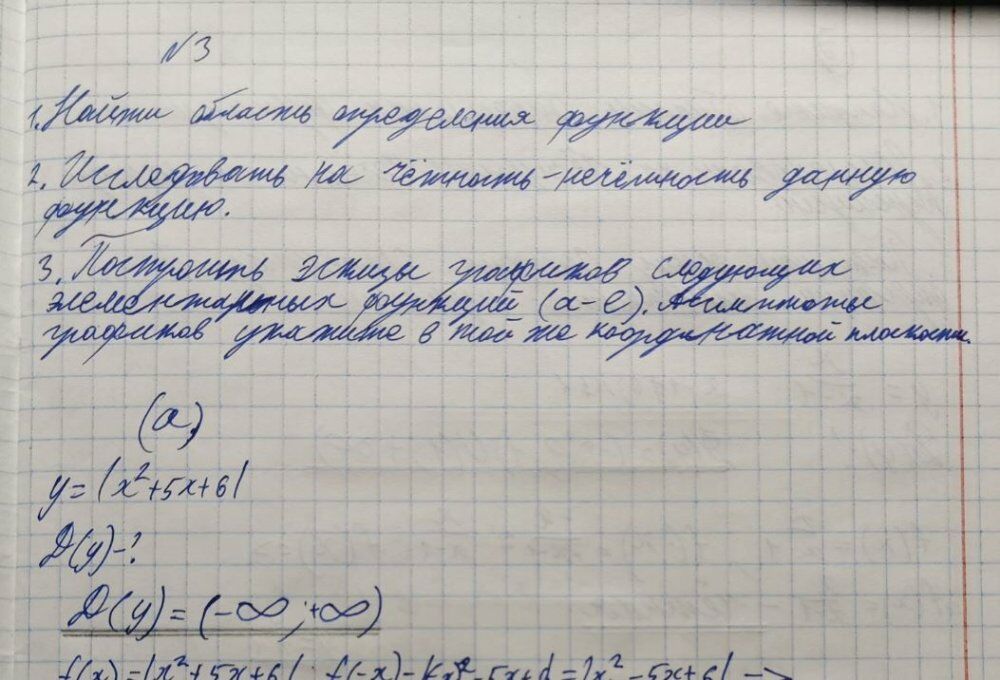 №3
1. Найти область определения функции
2. Исследовать на чётность-нечётность данную
функцию.
3. Построить эскизы графиков следующих
элементарных функций (а-е). Асимптоты
графиков укажите в той же координатной плоскости.
(а)
y=|x²+5x+6|
D(y)-?
D(y)=(-∞;+∞)
f(x)=|x²+5x+6|; f(-x)= =|x²-5x+6| →